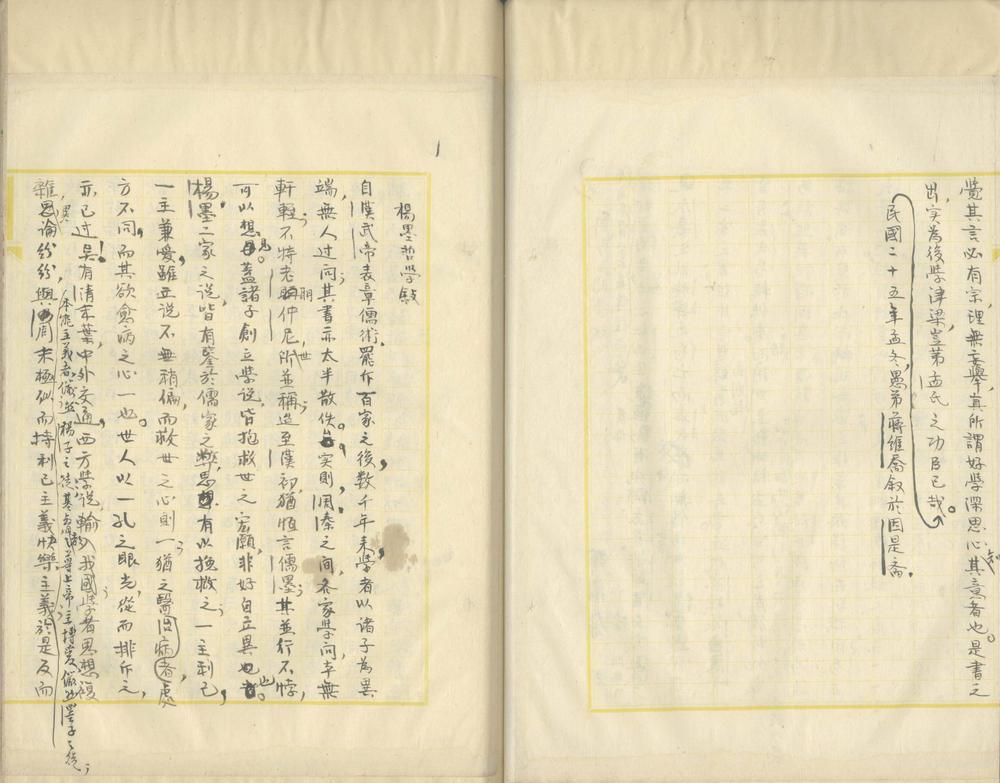 覺其言必有宗,理無妄舉,真所謂好學深思心知其意者也。是書之
出,實為後學津梁,豈第孟氏之功臣已哉。
民國二十五年孟冬愚弟蔣維喬敘於因是齋。
1
楊墨哲學敘
自漢武帝表章儒術,罷斥百家之後,數千年來學者以諸子為異
端,無人过问;其書亦太半散佚。實則周秦之间,各家學问,本無
軒輊;不特老聃仲尼,世所並稱;迨至漢初,猶恆言儒墨;其並行不悖,
可以想見。蓋諸子創立學說,皆抱救世之宏願,非好自立異也。
楊墨二家之说,皆有鑒於儒家之弊,思有以挽救之;一主利己,
一主兼愛,雖立说不無稍偏,而救世之心則一;猶之醫治病者,處
方不同,而其欲愈病之心一也。世人以一孔之眼光,從而排斥之,
亦已过矣!有清末葉,中外交通,西方學说,輸入我國;學者思想複
雜,異論紛紛,與周末極似;而持利己主義快樂主義於是反而
本能主義者,儼然楊子之徒;其尊上帝主博愛,儼然墨子之後;